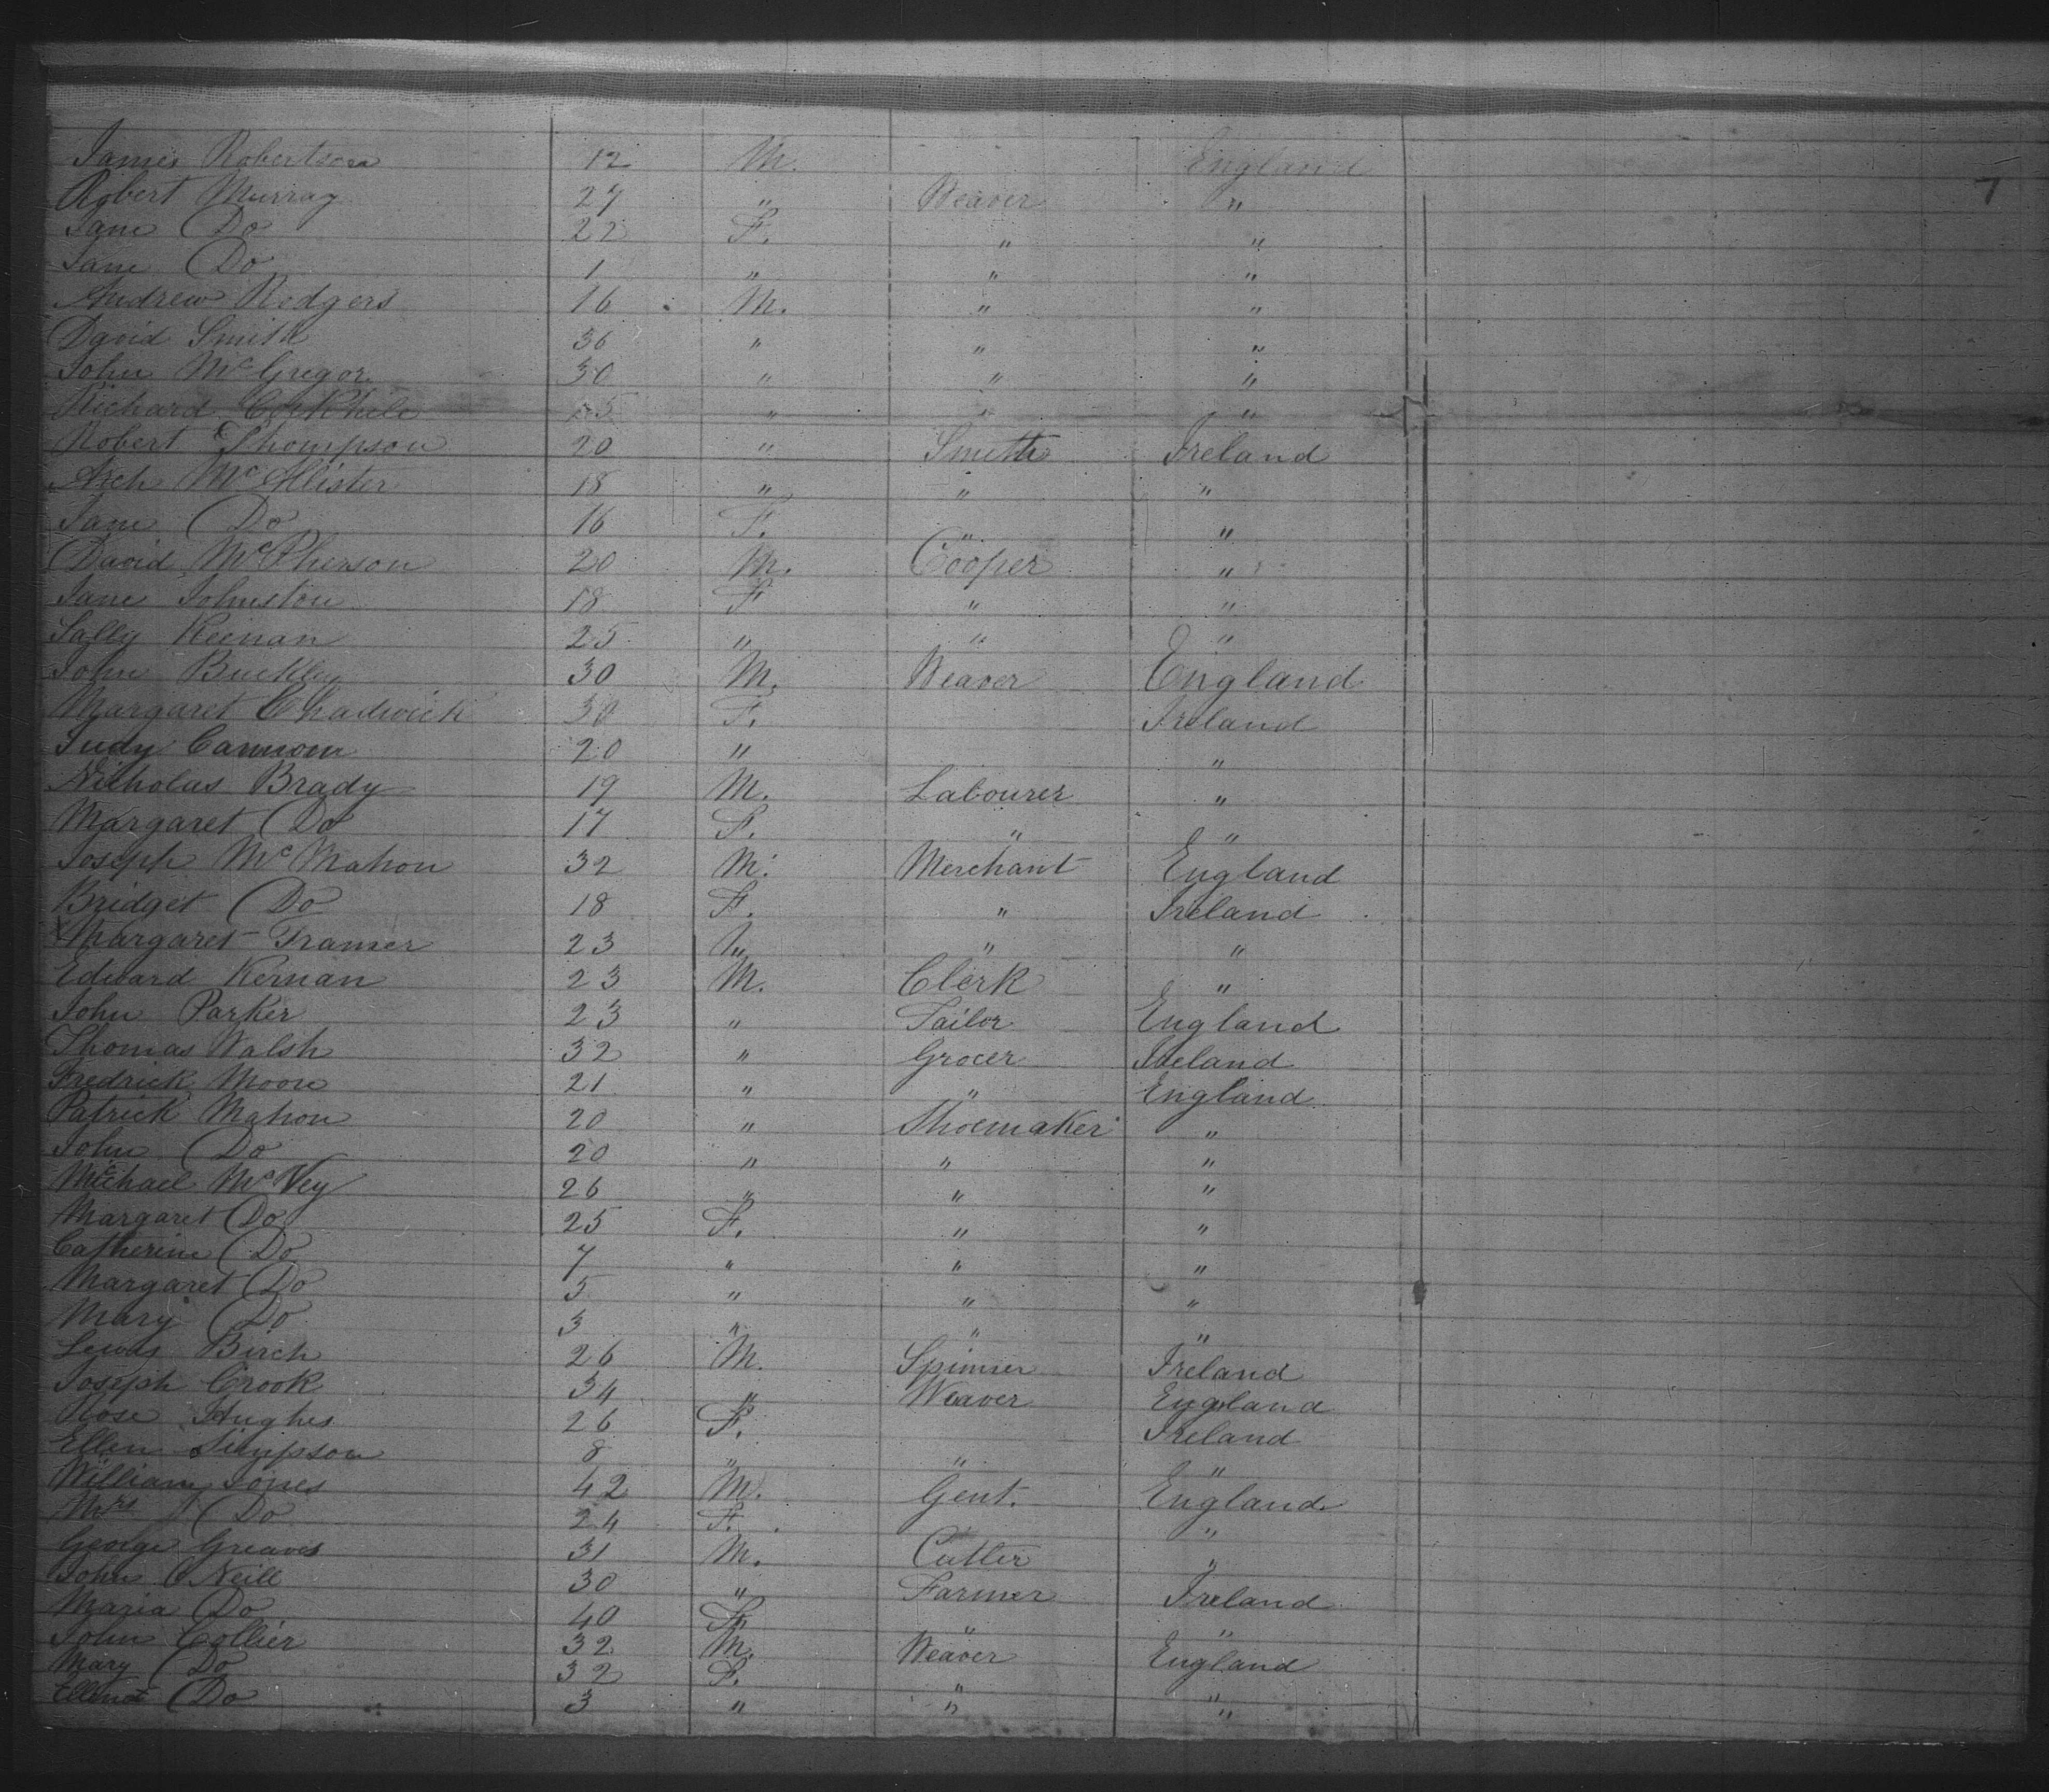 7
James Robertson 12 M. England
Robert Murray 27 " Weaver "
Jane Do 22 F. " "
Jane Do 1 " " "
Andrew Rodgers 16 M. " "
David Smith 36 " " "
John McGregor 30 " " "
Richard 25 " " "
Robert Thompson 20 " Smith Ireland
Arch McAlister 18 " " "
Jane Do 16 F. "
David McPherson 20 M. Cooper "
Jane Johnston 18 F " "
Sally Keenan 25 " " "
John Buckley 30 M. Weaver England
Margaret Chadwick 30 F. Ireland
Judy Cannon 20 " "
Nicholas Brady 19 M. Labourer "
Margaret Do 17 F. " "
Joseph McMahon 32 M. Merchant England
Bridget Do 18 F. " Ireland
X Margaret 23 " " "
Edward Kernan 23 M. Clerk "
John Parker 23 " Tailor England
Thomas Walsh 32 " Grocer Ireland
Fredrick Moore 21 " " England
Patrick Mahon 20 " Shoemaker "
John Do 20 " " "
Michael McVey 26 " " "
Margaret Do 25 F. " "
Catherine Do 7 " " "
Margaret Do 5 " " "
Mary Do 3 " " "
Lewis Birch 26 M. Spinner Ireland
Joseph Crook 34 " Weaver England
Rose Hughes 26 F. Ireland
Ellen Simpson 8 " " "
William Jones 42 M. Gent. England
Mrs Do 24 F. "
George Greaves 31 M. Cutler "
John O'Neill 30 " Farmer Ireland
Maria Do 40 F. " "
John Collier 32 M. Weaver England
Mary Do 32 F. " "
Do 3 " " "